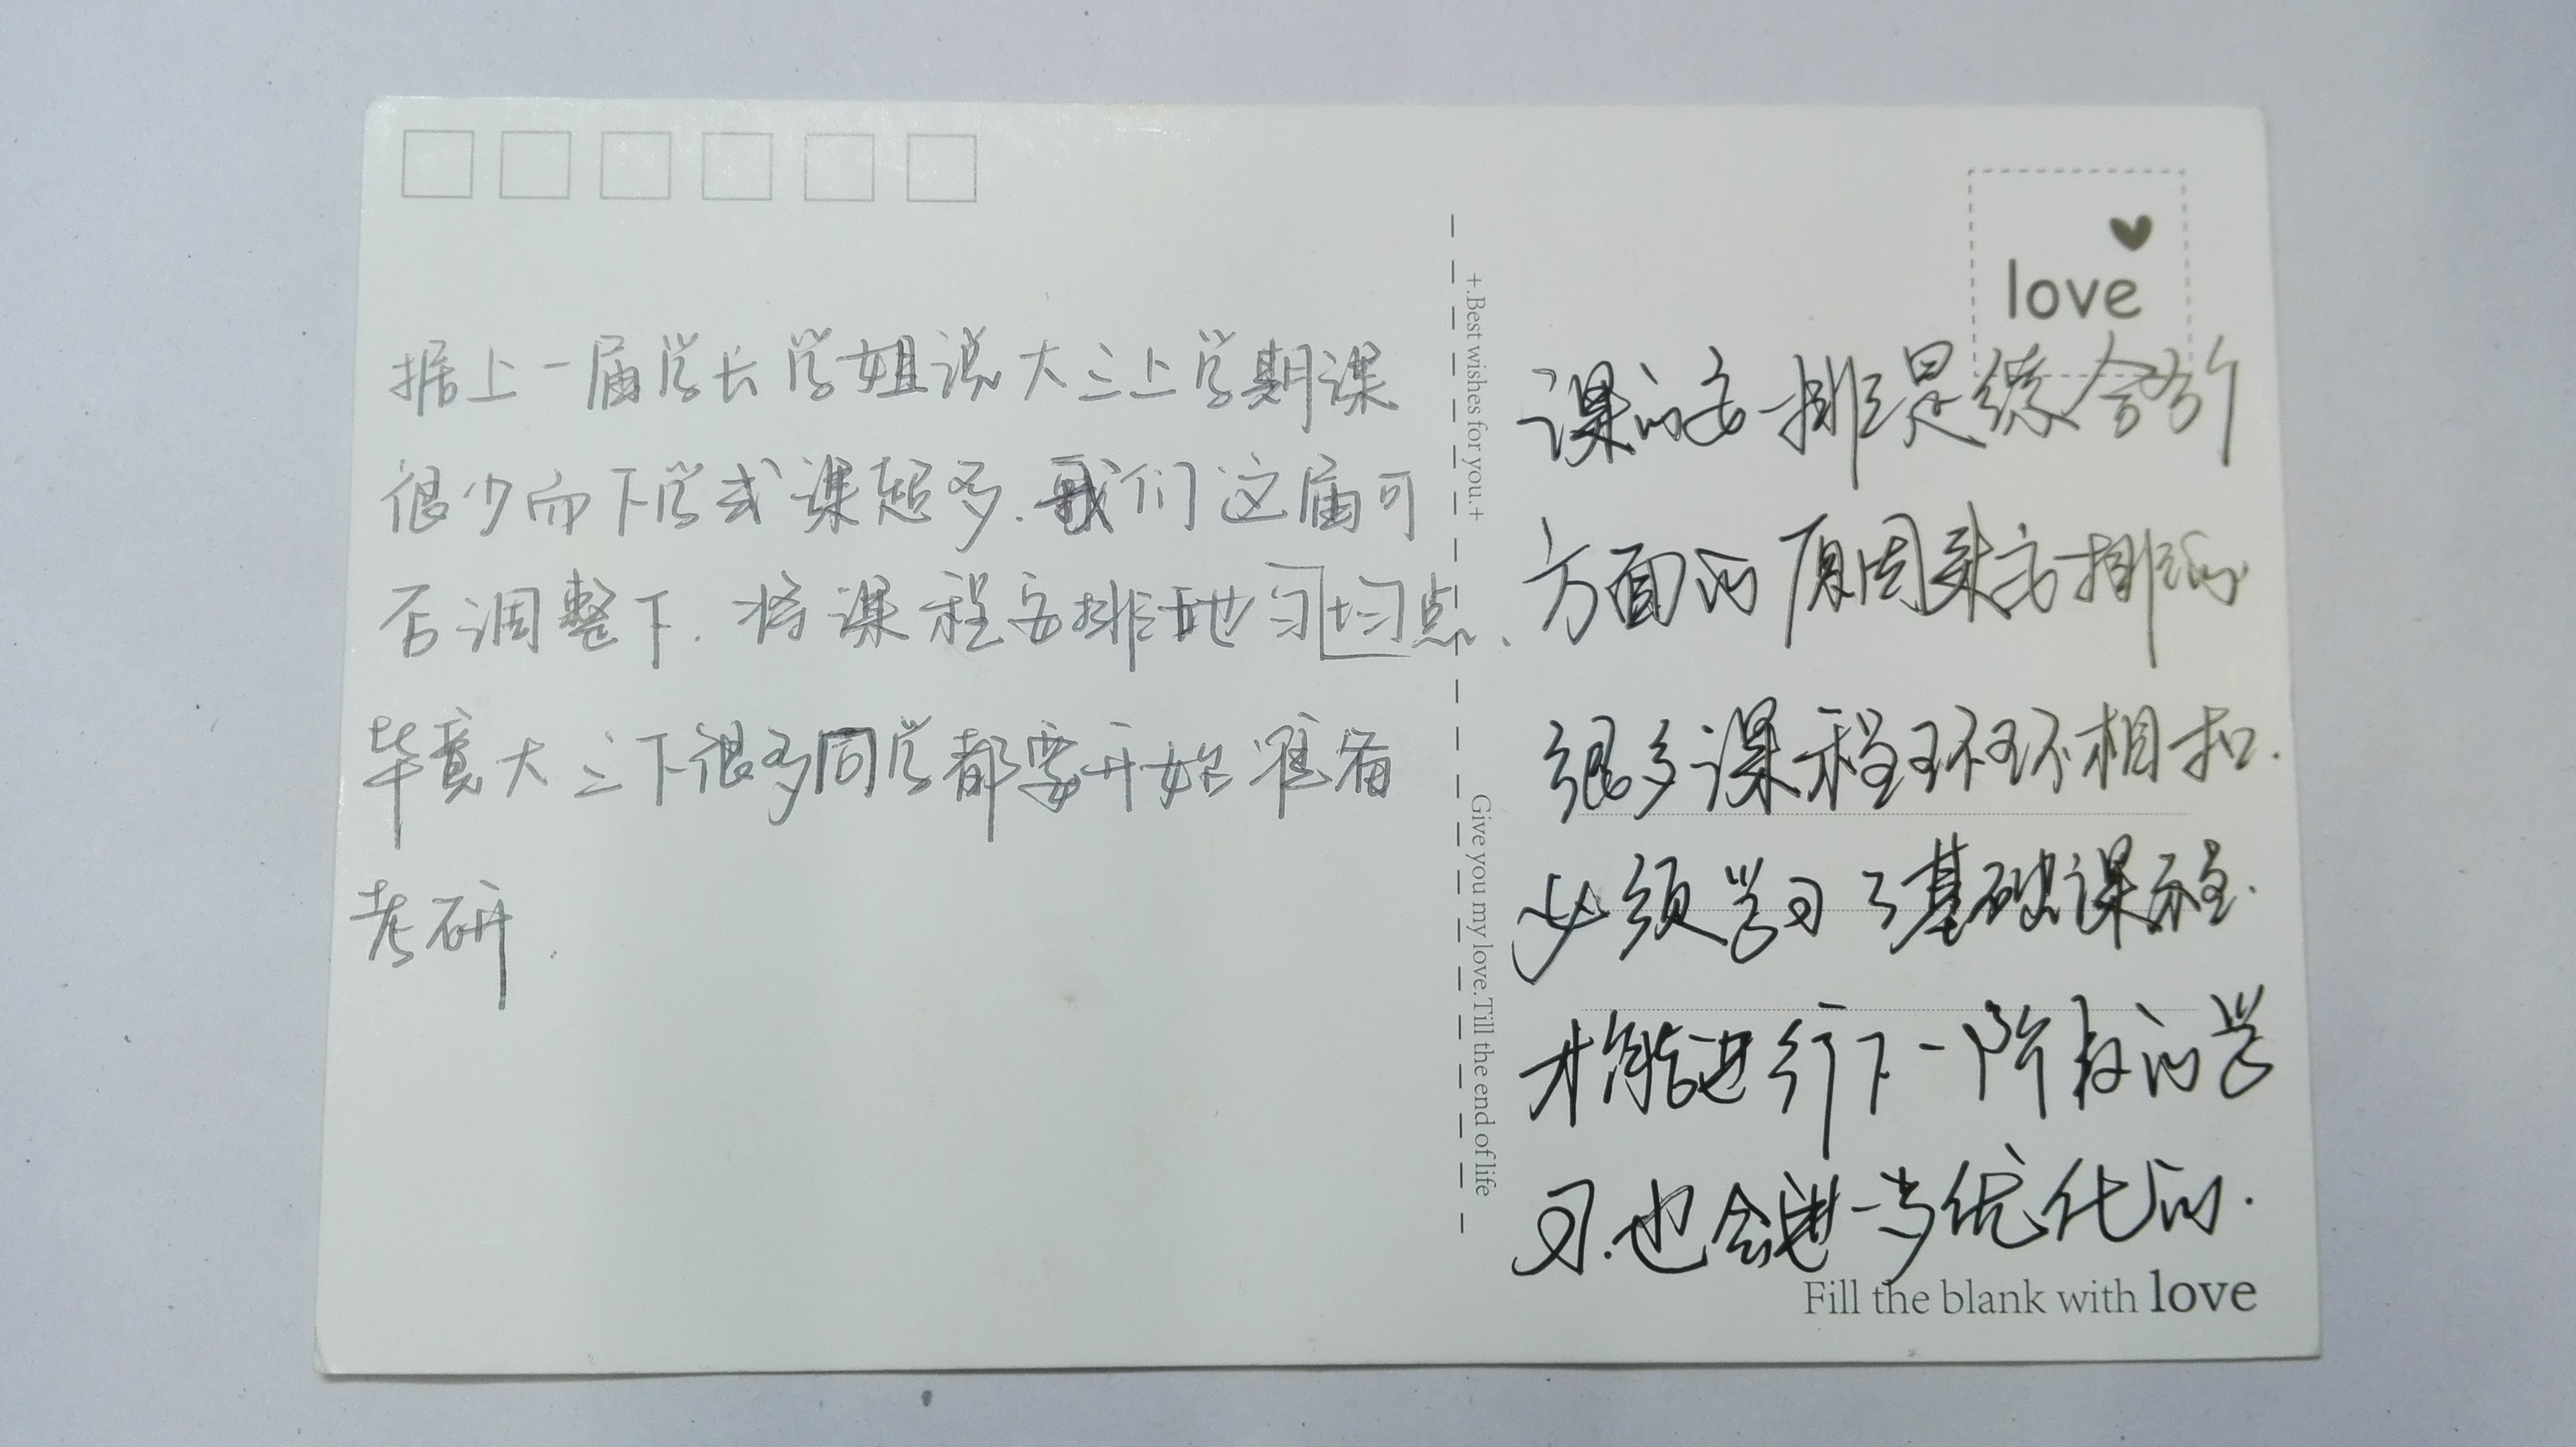 据上一届学长学姐说大三上学期课
很少而下学式课超多.我们这届可
否调整下.将课程安排地匀均点.
毕竟大三下很多同学都要开始准备
考研.
+.Best wishes for you.+
Give you my love.Till the end of life
love
课的安排是综合多
方面的原因来安排的
很多课程环环相扣.
必须学习了基础课程.
才能进行下一阶段的学
习.也会进一步优化的.
Fill the blank with love